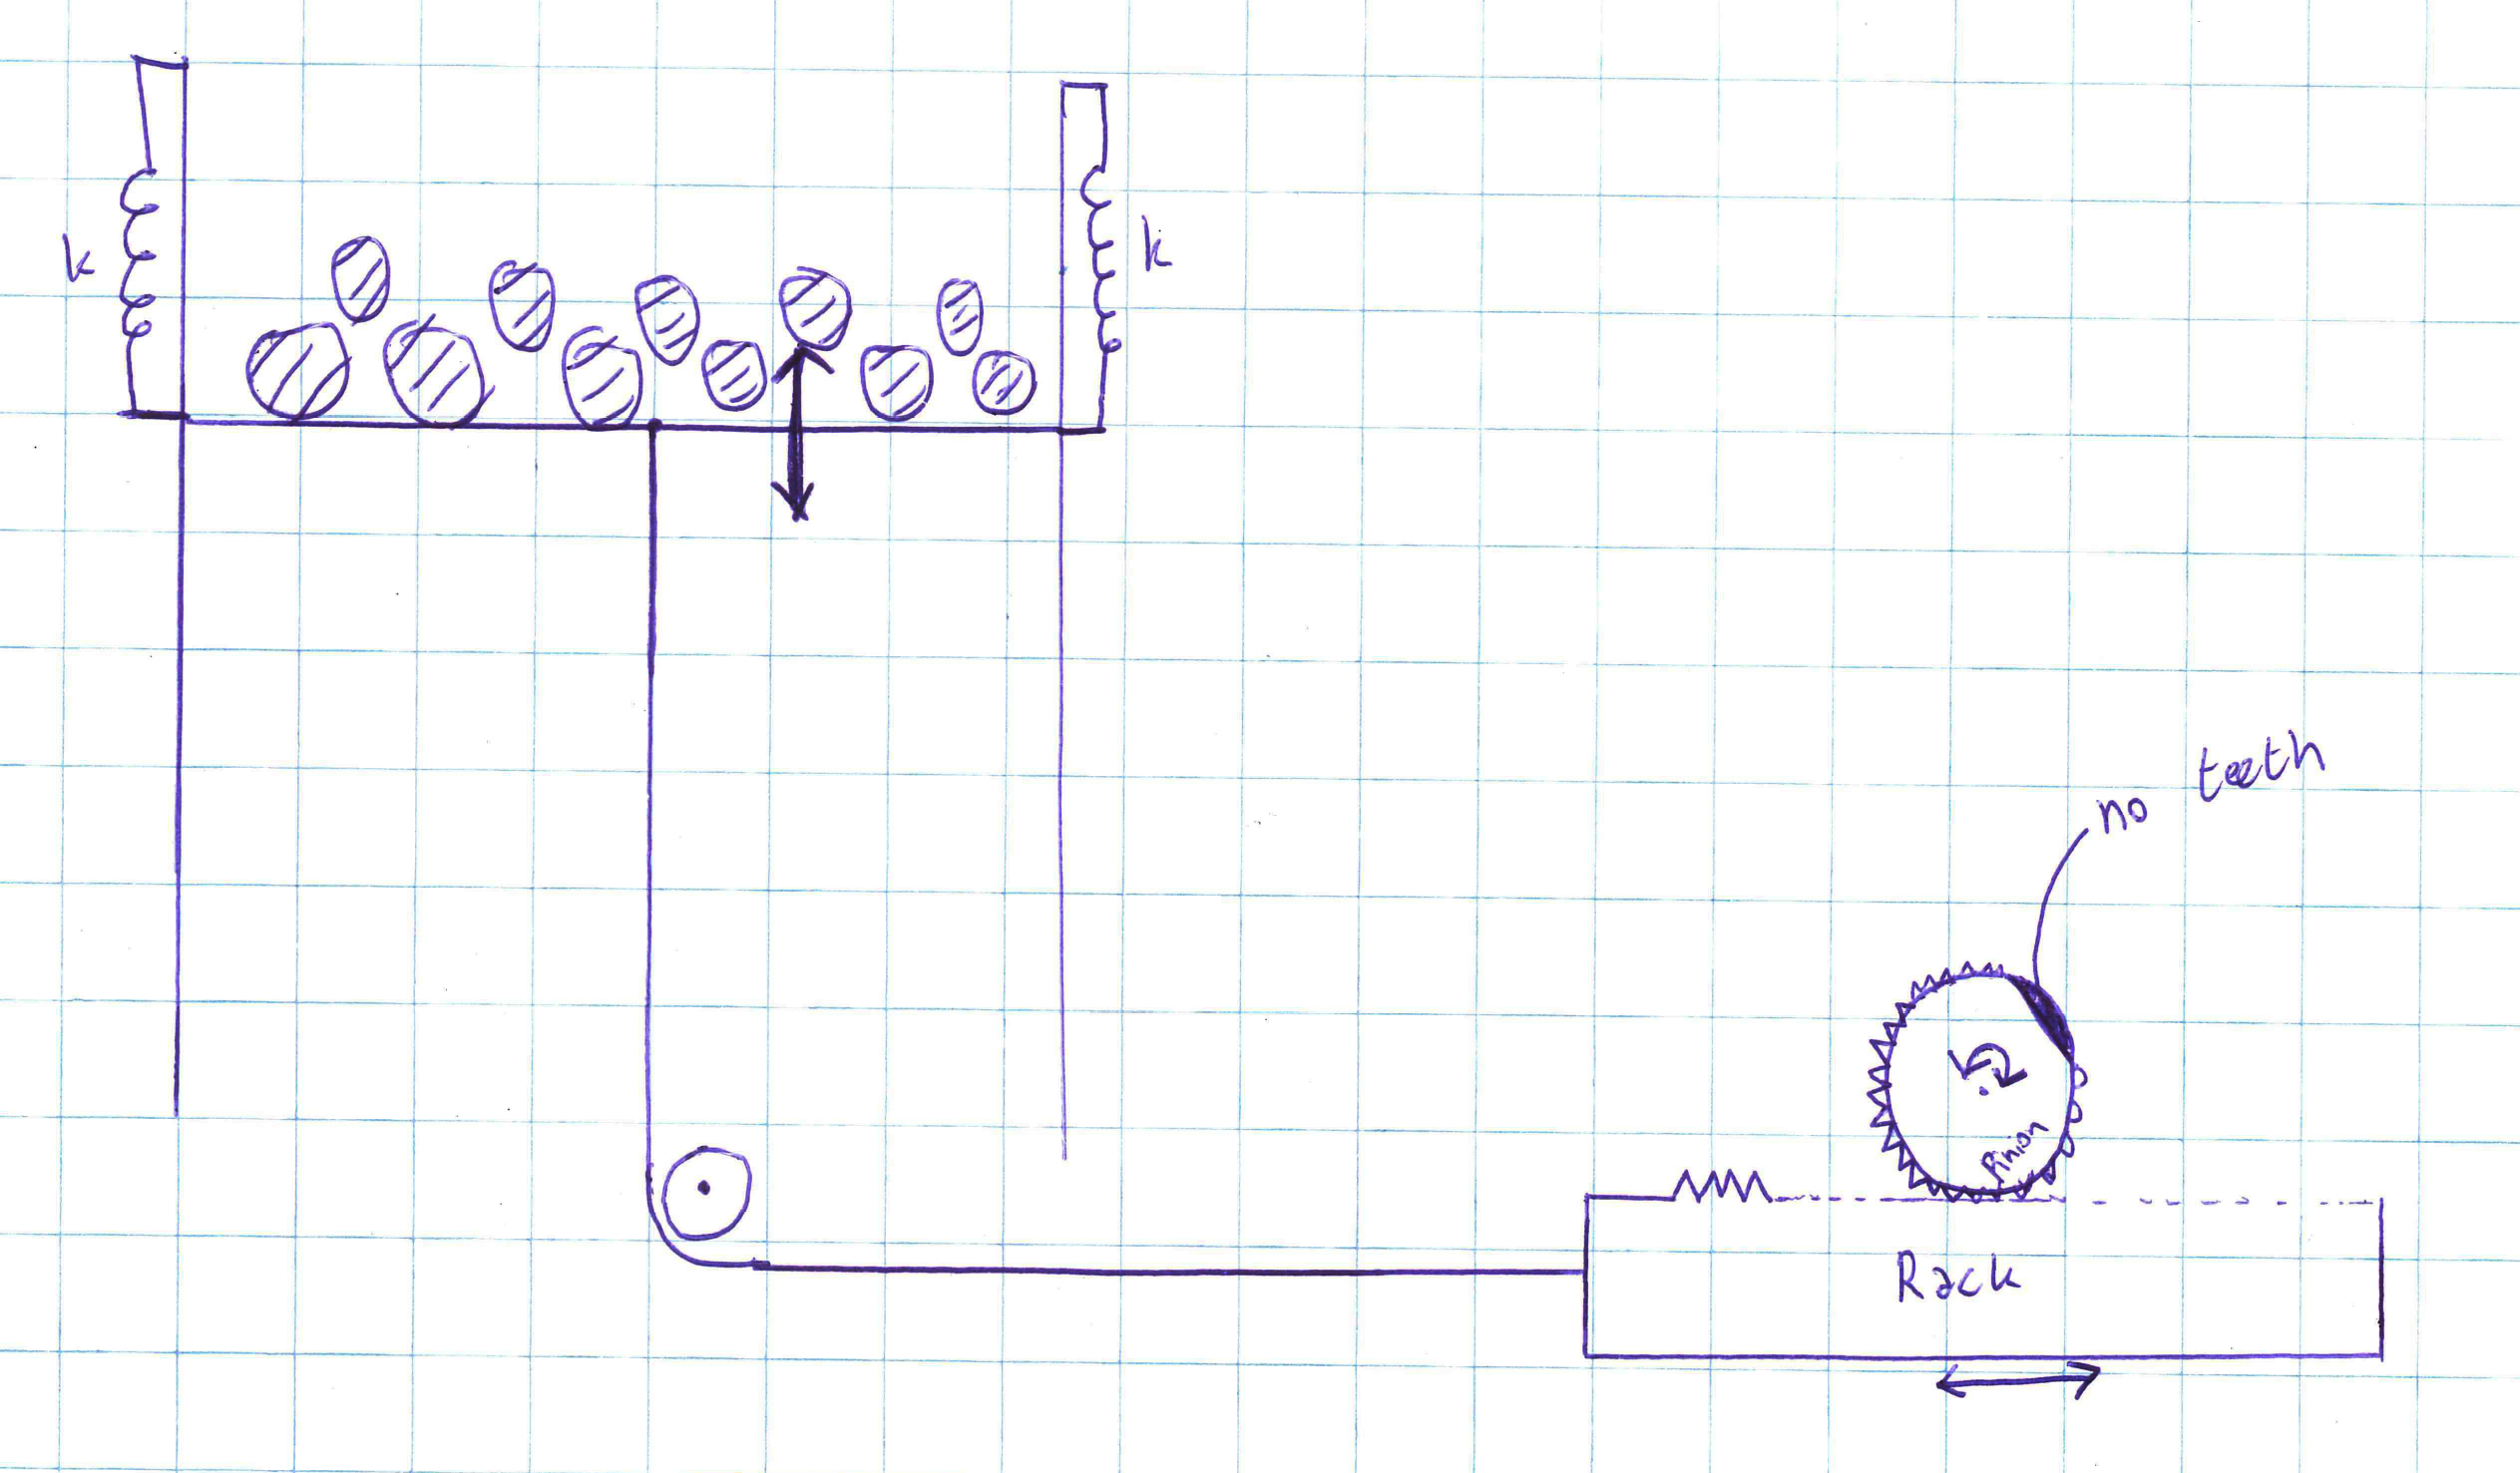 k
k
no teeth
Pinion
Rack